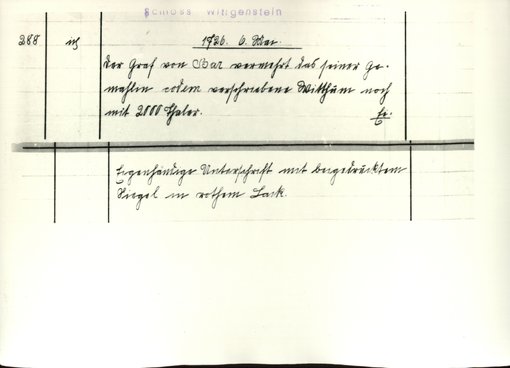 Schloss Wittgenstein
288 ich 1736. 6. Mai.
Der Graf von Bar vermehrt das seiner Ge-
mahlin eodem verschriebene Witthum noch
mit 2000 Thaler.
Eigenhändige Unterschrift mit beigedrücktem
Siegel in rothem Lack.